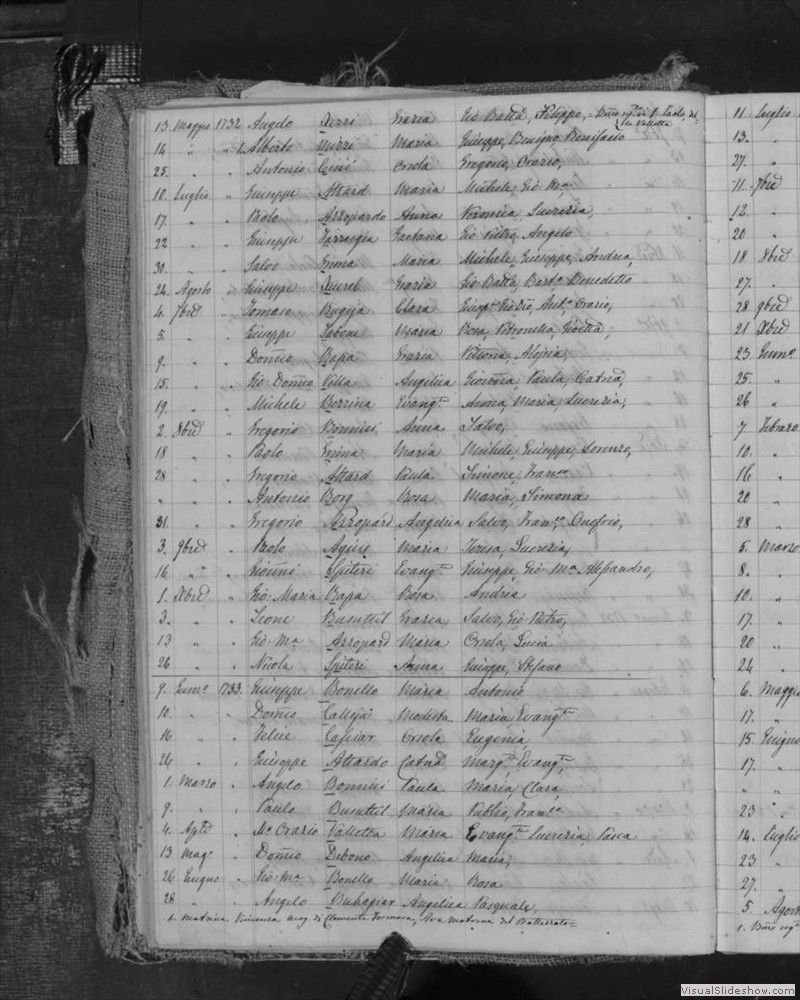 13. Maggio 1732 Angelo Xerri Grazia Gio Batta, Filippo,
14 " " 1. Alberto Mizzi Maria Giuseppe, Benigno Bonifacio
25. " " Antonio Orsola Gregorio, Orazio,
10. Luglio " Giuseppe Attard Maria Michele, Gio Ma
17. " " Paolo Azzopardo Anna Veronica, Lucrezia,
22 " " Giuseppe Farrugia Gaetana Gio Pietro, Angelo
30. " " Salvo Emma Maria Michele, Giuseppe, Andrea,
24. Agosto " Giuseppe Xuereb Grazia Gio Batta, Bart.o Benedetto
4. 7bre " Tomaso Bugeja Clara Ant.o Grazio,
5. " " Giuseppe Tabone Maria Rosa, Petronella,
9. " " Dom.co Bapa Grazia
15. " " Gio: Dom.co Vella Angelica Giovanna, Paula, Catna,
19. " " Michele Borrina Evang.ta Anna, Maria, Lucrezia,
2. 8bre " Gregorio Bonnici Anna Salvo,
18 " " Paolo Emma Maria Michele, Giuseppe, Lorenzo,
28 " " Gregorio Attard Paula Simone, Fran.co
" " " Antonio Borg Rosa Maria, Simona
31. " " Gregorio Azzopard Angelica Salvo, Fran.co Onofrio,
3. 9bre " Paolo Agius Maria Teresa, Lucrezia,
16. " " Gioanni Spiteri Evang.ta Giuseppe, Gio: Ma Alessandro,
1. Xbre " Gio: Maria Bapa Rosa Andrea
3. " " Leone Busuttil Grazia Salvo, Gio Pietro,
13 " " Gio: Ma Azzopard Maria Orsola, Lucia
26 " " Nicola Spiteri Anna Giuseppe, Stefano
9. Genn.o 1733. Giuseppe Bonello Maria Antonio
10. " " Dom.co Calleja Modesta Maria Evang.ta
16 " " Felice Caruar Orsola Eugenia,
26 " " Giuseppe Attardo Catna Marg.ta, Evang.ta,
1. Marzo " Angelo Bonnici Paula Maria, Clara
9. " " Paulo Busuttil Maria Publio, Fran.co
4. Aple " Mo Orazio Valletta Maria Evang.ta Lucrezia, Pasca
13 Mag.o " Dom.co Debono Angelica Maria,
26 Giugno " Gio: Ma Bonello Maria Rosa
28 " " Angelo Buhagiar Angelica Pasquale,
1. Matrina Vincenza mog. di Clemente Formosa,
11 Luglio
13. "
27. "
11. 7bre
12. "
20 "
18 8bre
27. "
28 9bre
21 Xbre
23 Genn.o
25. "
26 "
7 Febraro
10. "
16 "
20 "
28 "
5. Marzo
8. "
10. "
17. "
20 "
24 "
6. Maggio
17. "
15. Giugno
17. "
" "
23 "
14. Luglio
23 "
27. "
5 Agost
VisualSlideshow.com